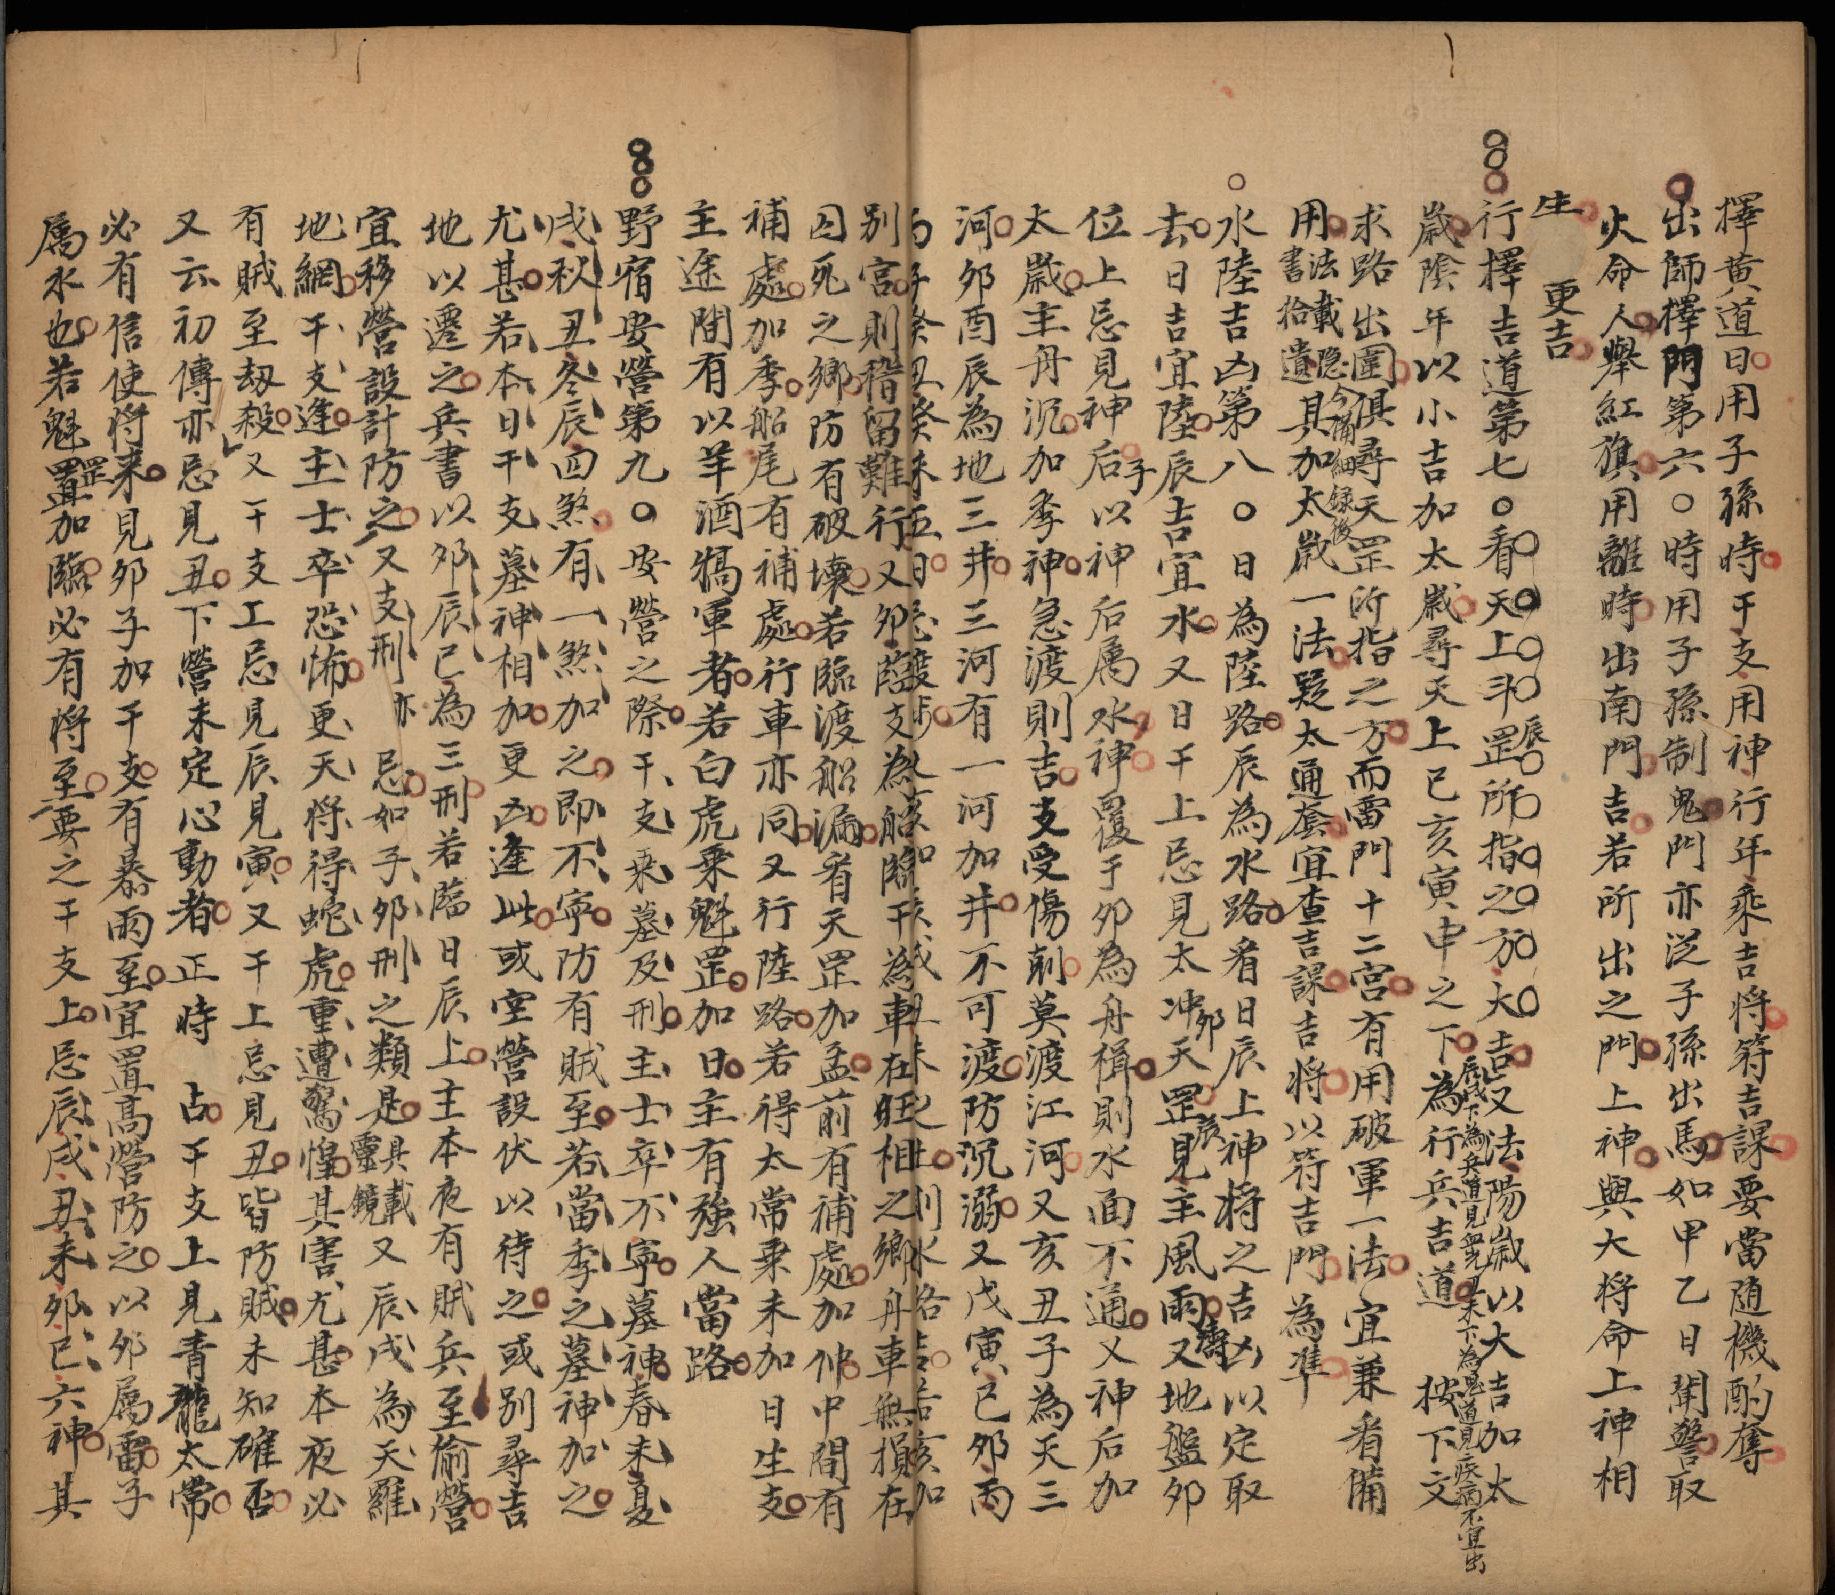 擇黃道日用子孫時干支用神行年乘吉將符吉課要當随機酌奪
出師擇門第六○時用子孫制鬼門亦泛子孫出馬如甲乙日閧警取
火命人舉紅旗用離時出南門吉若所出之門上神與大將命上神相
生 更吉
行擇吉道第七○看天上斗罡所指之方大吉又法陽歲以大吉加太
辰
歲陰年以小吉加太歲尋天上巳亥寅申之下為行兵吉道 按下文
辰戌下為兵道見血光丑未下為鬼道見疾病不宜出
求路出圍俱尋天罡所指之方而雷門十二宮有用破軍一法宜兼看備
用法載隐書拾遺今補細録後其加太歲一法疑太通套宜查吉課吉將以符吉門為凖
水陸吉凶第八○日為陸路辰為水路看日辰上神將之吉凶以定取
去日吉宜陸辰吉宜水又日干上忌見太冲卯天罡辰見主風雨又地盤卯
位上忌見神后子以神后属水神覆于卯為舟楫則水面不通又神后加
太歲主舟沉加季神急渡則吉支受傷剋莫渡江河又亥丑子為天三
河卯酉辰為地三井三河有一河加井不可渡防沉溺又戊寅巳卯丙
別宮則稽留難行又卯臨支為船臨干為車在旺相之鄉舟車無損在
囚死之鄉防有破壞若臨渡船漏看天罡加孟前有補處加仲中間有
補處加季船尾有補處行車亦同又行陸路若得太常乗未加日生支
主途間有以羊酒犒軍者若白虎乗魁罡加日主有强人當路
野宿安營第九○安營之際干支乗墓及刑主士卒不寧墓神春未夏
戌秋丑冬辰四煞有一煞加之即不寧防有賊至若當季之墓神加之
尤甚若本日干支墓神相加更凶逢此或空營設伏以待之或別尋吉
地以遷之兵書以卯辰巳為三刑若臨日辰上主本夜有賊兵至偷營
宜移營設計防之又支刑亦忌如子卯刑之類是具載靈鏡又辰戌為天羅
地網干支逢主士卒恐怖更天將得蛇虎重遭驚惶其害尤甚本夜必
有賊至刼殺又干支工忌見辰見寅又干上忌見丑皆防賊未知確否
又云初傳亦忌見丑下營未定心動者正時 占干支上見青龍太常
必有信使將来見卯子加干支有暴雨至宜置高營防之以卯属雷子
属水也若魁罡置加臨必有將至要之干支上忌辰戌丑未卯巳六神其